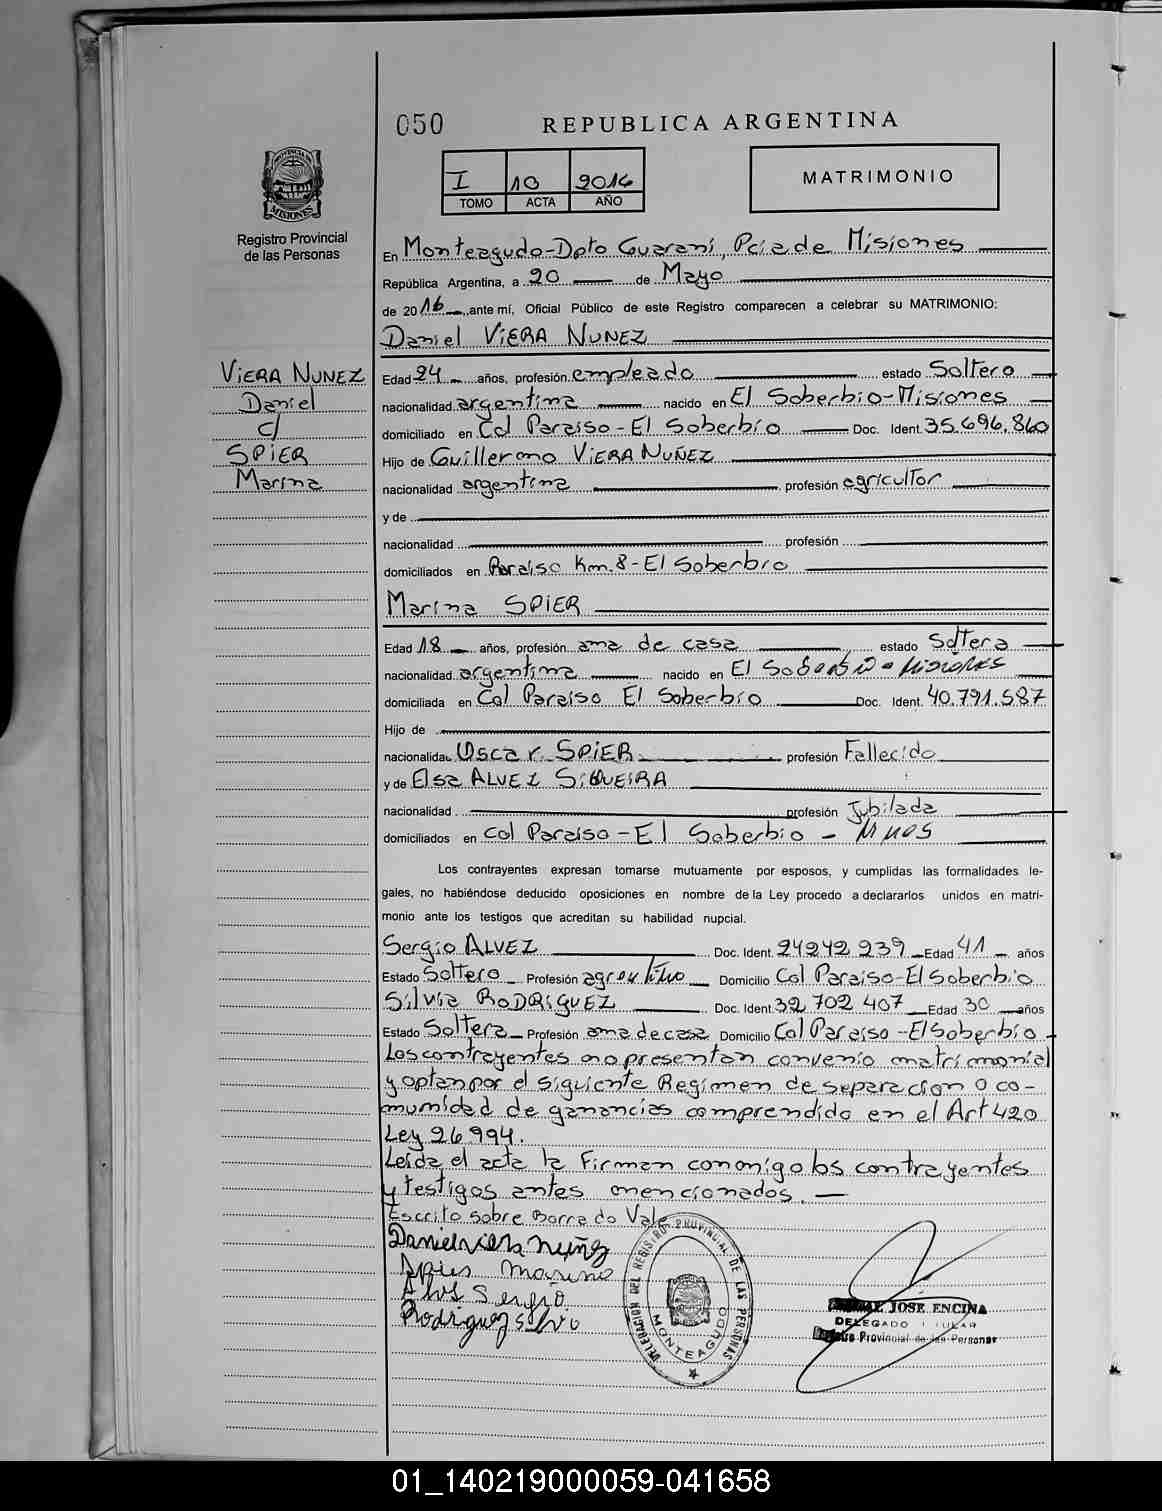 050 REPUBLICA ARGENTINA
I 10 2016 MATRIMONIO
TOMO ACTA AÑO
PROVINCIA DE MISIONES
Registro Provincial
de las Personas
En Monteagudo-Dpto Guaraní, Pcia de Misiones
República Argentina, a 20 de Mayo
de 2016 ante mí, Oficial Público de este Registro comparecen a celebrar su MATRIMONIO:
Daniel VIERA NUNEZ
VIERA NUNEZ
Daniel
c/
SPIER
Marina
Edad 24 años, profesión empleado estado Soltero
nacionalidad argentina nacido en El Soberbio-Misiones
domiciliado en Col Paraiso-El Soberbio Doc. Ident. 35.696.860
Hijo de Guillermo VIERA NUÑEZ
nacionalidad argentina profesión agricultor
y de
nacionalidad profesión
domiciliados en Paraiso Km.8-El Soberbio
Marina SPIER
Edad 18 años, profesión ama de casa estado Soltera
nacionalidad argentina nacido en El Soberbio-Misiones
domiciliada en Col Paraiso El Soberbio Doc. Ident. 40.791.587
Hijo de
nacionalidad Oscar SPIER profesión Fallecido
y de Elsa ALVEZ SIQUEIRA
nacionalidad profesión Jubilada
domiciliados en Col Paraiso-El Soberbio -
Los contrayentes expresan tomarse mutuamente por esposos, y cumplidas las formalidades le-
gales, no habiéndose deducido oposiciones en nombre de la Ley procedo a declararlos unidos en matri-
monio ante los testigos que acreditan su habilidad nupcial.
Sergio ALVEZ Doc. Ident. 24242239 Edad 41 años
Estado Soltero Profesión Domicilio Col Paraiso-El Soberbio
Silvia RODRIGUEZ Doc. Ident. 32 702 407 Edad 30 años
Estado Soltera Profesión ama de casa Domicilio Col Paraiso-El Soberbio
Los contrayentes no presentan convenio matrimonial
y optan por el siguiente Regimen de separacion o co-
munidad de ganancias comprendido en el Art 420
Ley 26994.
Leída el acta la firman conmigo los contrayentes
y testigos antes mencionados.
Escrito sobre Borrado Vale
Daniel viera nuñez
Rodriguez silvia
DELEGACION DEL REGISTRO PROVINCIAL DE LAS PERSONAS
MONTEAGUDO
JOSE ENCINA
DELEGADO TITULAR
Registro Provincial de las Personas
01_140219000059-041658